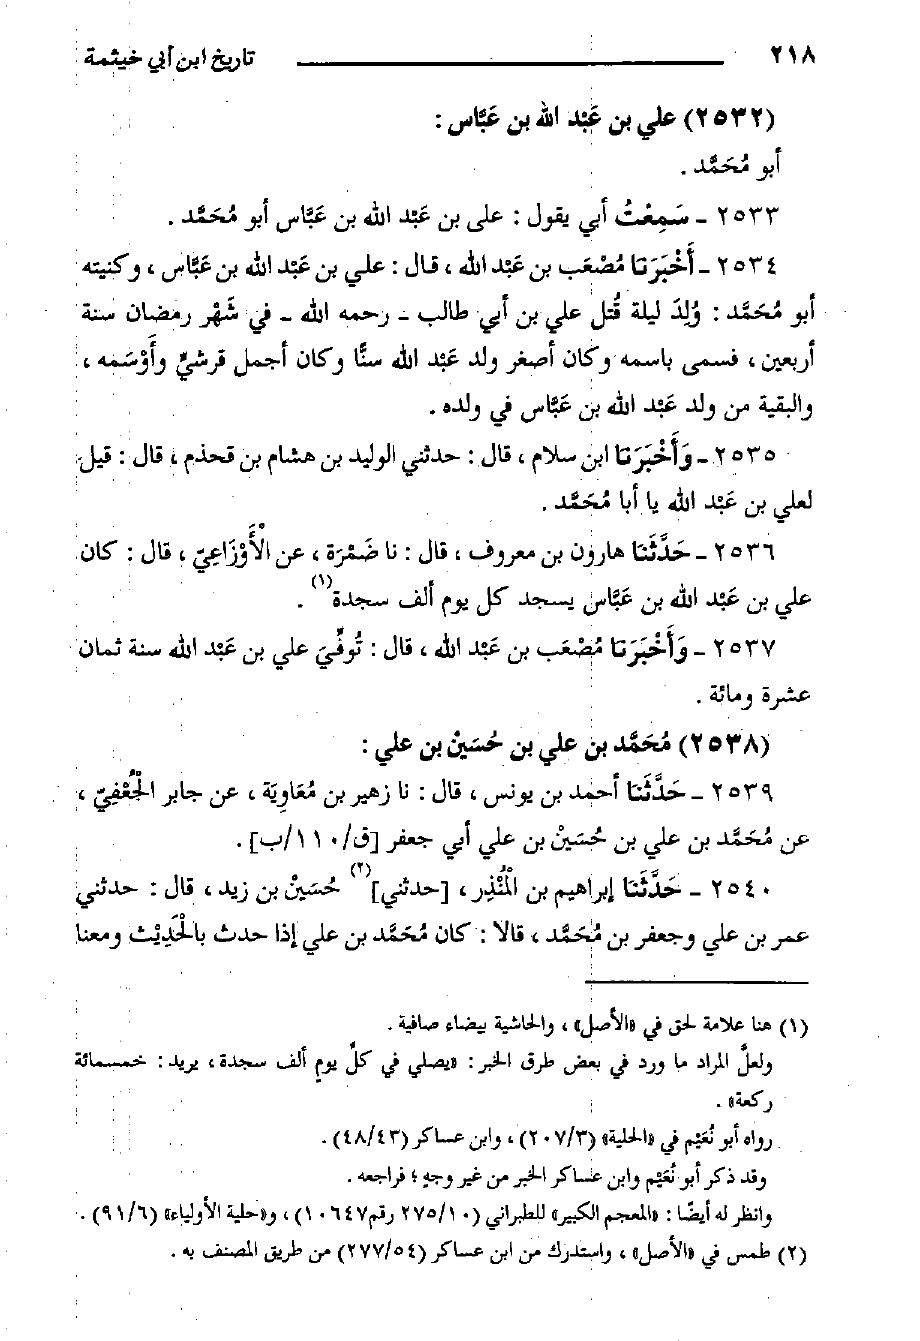 ٢١٨ تاريخ ابن أبي خيثمة
(٢٥٣٢) علي بن عَبْد الله بن عَبَّاس :
أبو مُحَمَّد .
٢٥٣٣ - سَمِعْتُ أبي يقول : على بن عَبْد الله بن عَبَّاس أبو مُحَمَّد .
٢٥٣٤ - أَخْبَرَنا مُصْعَب بن عَبْد الله ، قال : علي بن عَبْد الله بن عَبَّاس ، وكنيته
أبو مُحَمَّد : وُلِدَ ليلة قُتل علي بن أبي طالب - رحمه الله - في شَهْر رمضان سنة
أربعين ، فسمى باسمه وكان أصغر ولد عَبْد الله سنًّا وكان أجمل قرشيٍّ وأَوْسَمه ،
والبقية من ولد عَبْد الله بن عَبَّاس في ولده .
٢٥٣٥ - وَأَخْبَرَنا ابن سلام ، قال : حدثني الوليد بن هشام بن قحذم ، قال : قيل
لعلي بن عَبْد الله يا أبا مُحَمَّد .
٢٥٣٦ - حَدَّثَنا هارون بن معروف ، قال : نا ضَمْرَة ، عن الأَوْزَاعِيّ ، قال : كان
علي بن عَبْد الله بن عَبَّاس يسجد كل يوم ألف سجدة(١) .
٢٥٣٧ - وَأَخْبَرَنا مُصْعَب بن عَبْد الله ، قال : تُوفِّيَ علي بن عَبْد الله سنة ثمان
عشرة ومائة .
(٢٥٣٨) مُحَمَّد بن علي بن حُسَيْن بن علي :
٢٥٣٩ - حَدَّثَنا أحمد بن يونس ، قال : نا زهير بن مُعَاوِيَة ، عن جابر الجُعْفِيّ ،
عن مُحَمَّد بن علي بن حُسَيْن بن علي أبي جعفر [ق/١١٠/ب] .
٢٥٤٠ - حَدَّثَنا إبراهيم بن المُنْذِر ، [حدثني](٢) حُسَيْن بن زيد ، قال : حدثني
عمر بن علي وجعفر بن مُحَمَّد ، قالا : كان مُحَمَّد بن علي إذا حدث بالحَدِيْث ومعنا
(١) هنا علامة لحق في «الأصل» ، والحاشية بيضاء صافية .
ولعلَّ المراد ما ورد في بعض طرق الخبر : «يصلي في كلِّ يومٍ ألف سجدة ، يريد : خمسمائة
ركعة» .
رواه أبو نُعَيْم في «الحلية» (٢٠٧/٣) ، وابن عساكر (٤٨/٤٣) .
وقد ذكر أبو نُعَيْم وابن عساكر الخبر من غير وجهٍ ؛ فراجعه .
وانظر له أيضًا : «المعجم الكبير» للطبراني (٢٧٥/١٠ رقم١٠٦٤٧) ، و«حلية الأولياء» (٩١/٦) .
(٢) طمس في «الأصل» ، واستدرك من ابن عساكر (٢٧٧/٥٤) من طريق المصنف به .